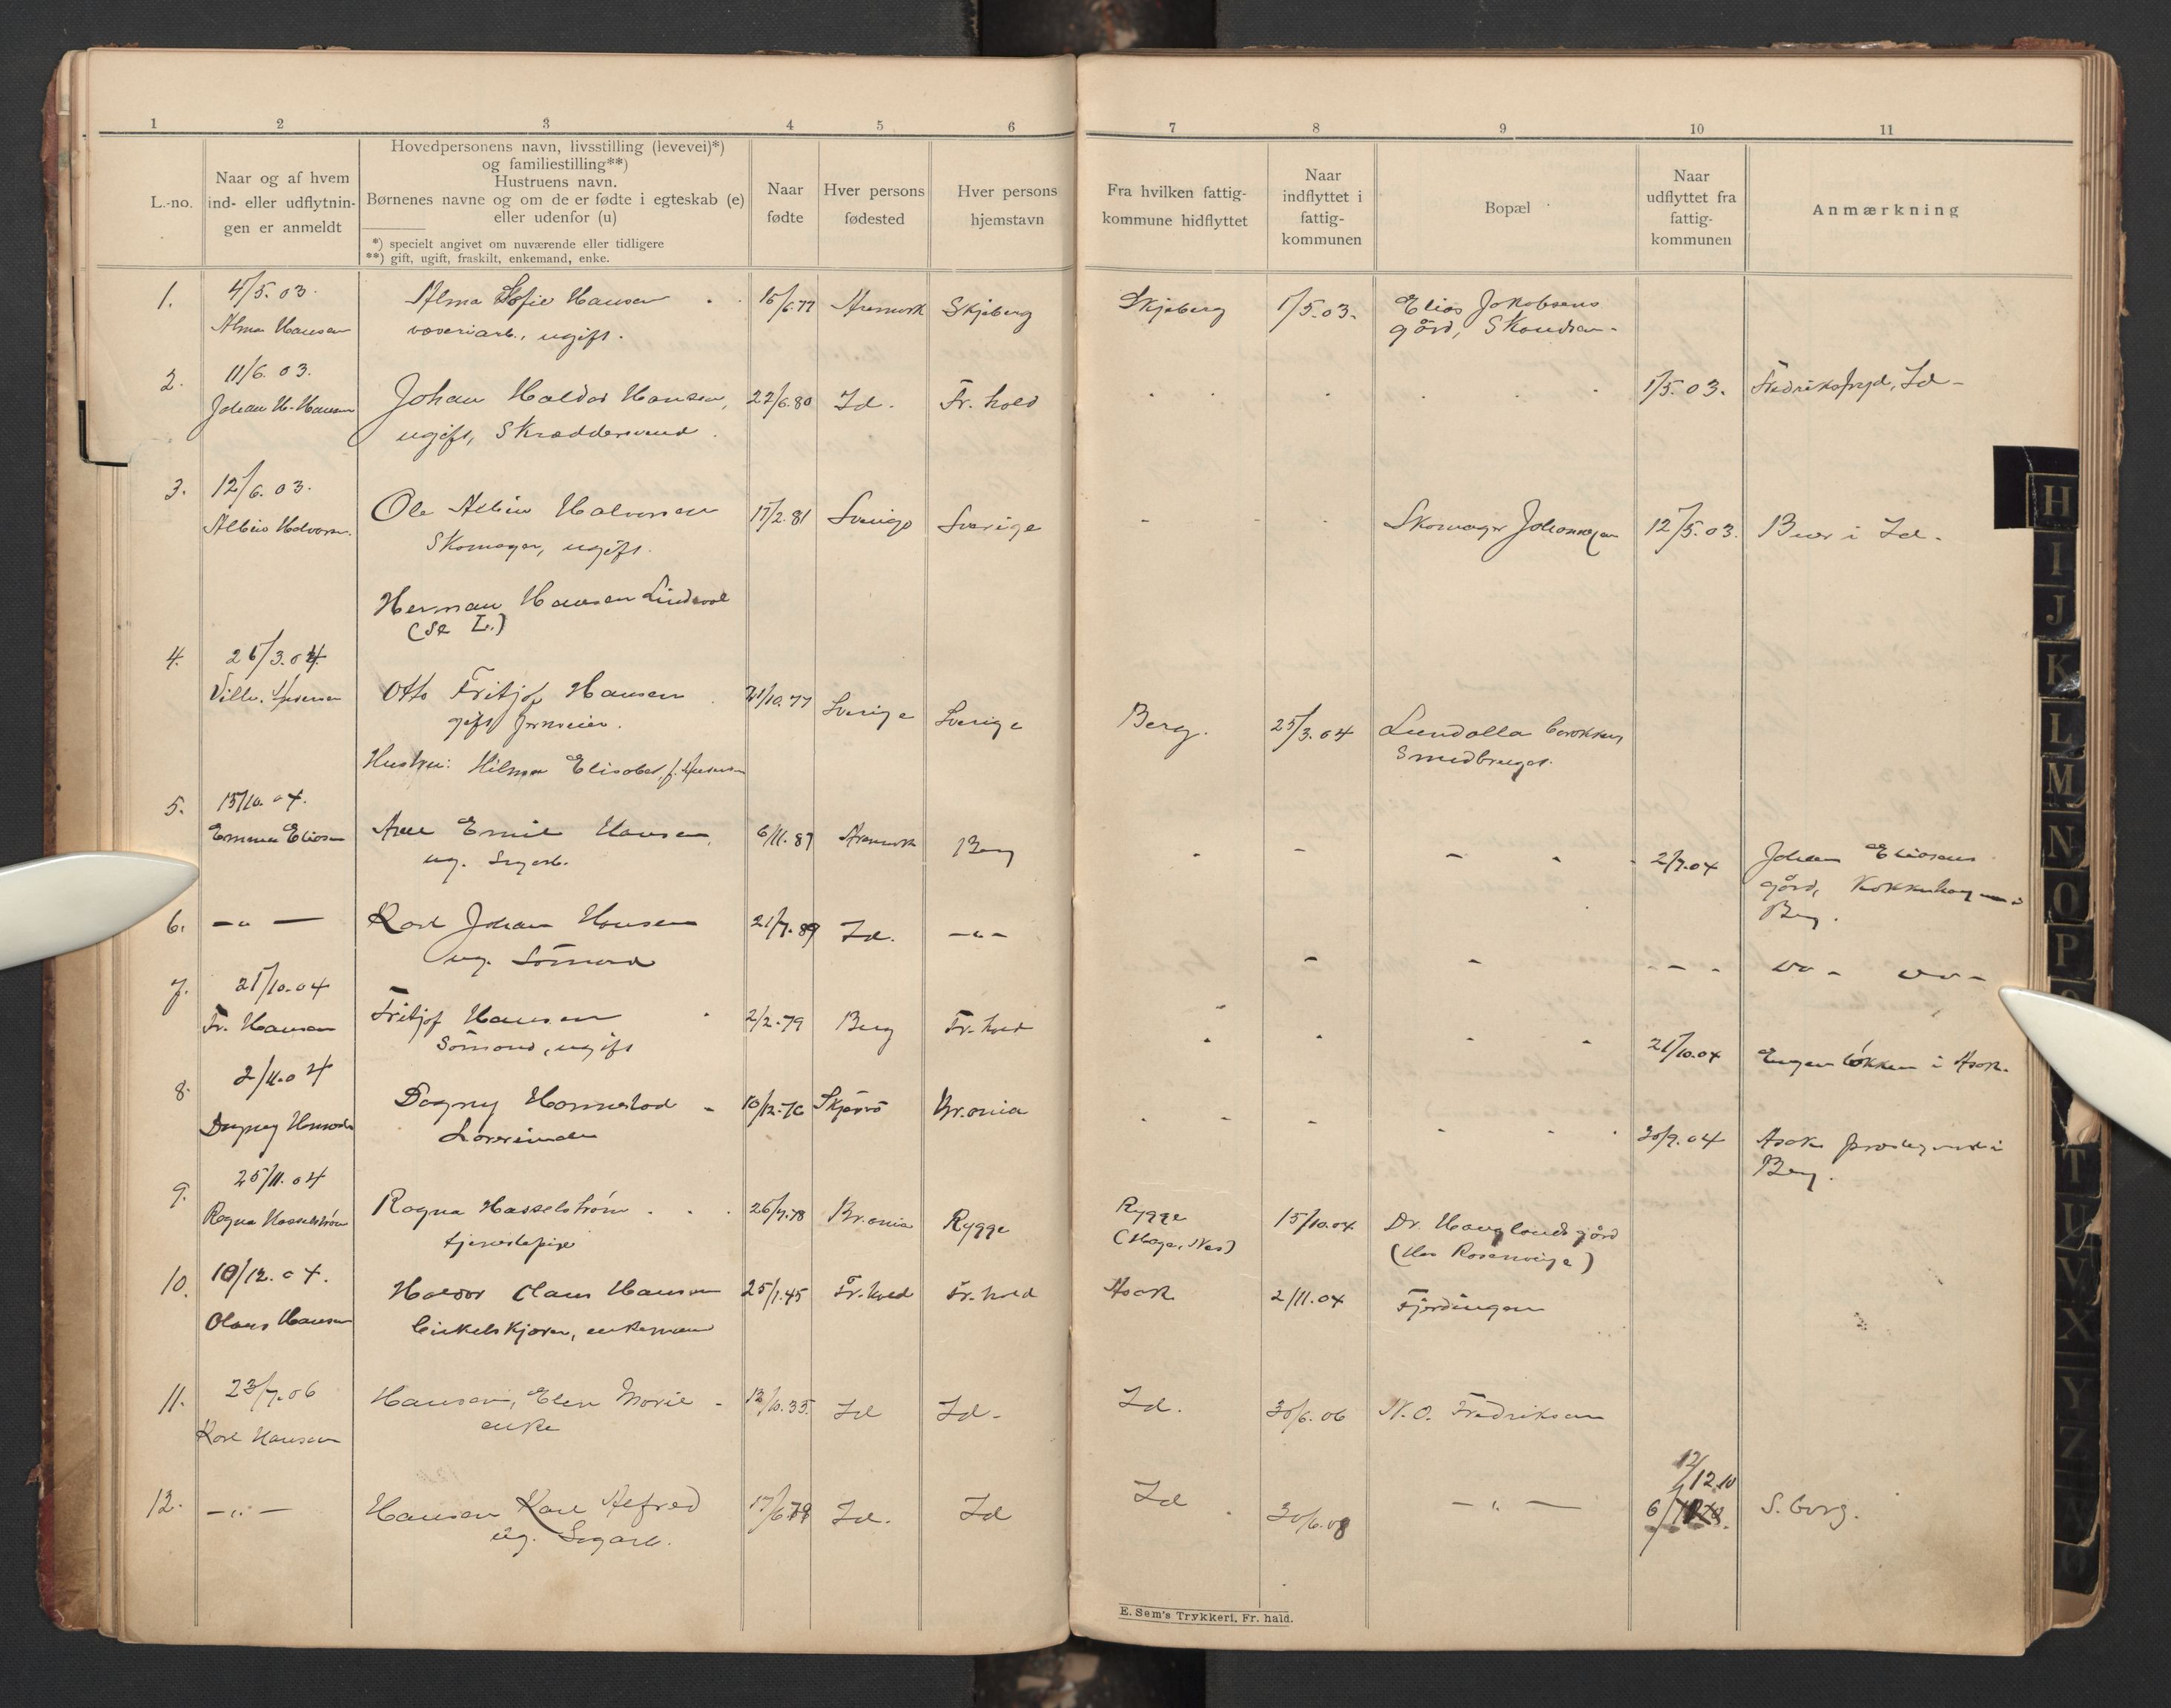 1 2 3 4 5 6 7 8 9 10 11
L.-no.
Naar og af hvem
ind- eller udflytnin-
gen er anmeldt
Hovedpersonens navn, livsstilling (levevei)*)
og familiestilling**)
Hustruens navn.
Børnenes navne og om de er fødte i egteskab (e)
eller udenfor (u)
*) specielt angivet om nuværende eller tidligere
**) gift, ugift, fraskilt, enkemand, enke.
Naar
fødte
Hver persons
fødested
Hver persons
hjemstavn
Fra hvilken fattig-
kommune hidflyttet
Naar
indflyttet i
fattig-
kommunen
Bopæl
Naar
udflyttet fra
fattig-
kommunen
Anmærkning
1. 4/5. 03. Alma Sofie Hansen 15/6.77 Aremark Skjeberg Skjeberg 1/5.03. Elias Jakobsens
Alma Hansen væveriarb., ugift. gård,
2. 11/6. 03. Johan Haldor Hansen, 22/6.80 Id. Fr. hald 1/5.03. Fredriksfryd, Id
Johan H. Hansen ugift, Skræddersvend
3. 12/6. 03. Ole Albin Halvorsen 17/2.81 Sverige Sverige Skomager Johannesen 12/5.03. Buer i Id.
Albin Halvorsen. Skomager, ugift.
Herman Hansen Lindeval
(se L.)
4. 26/3.04. Otto Fritjof Hansen 21/10.77 Sverige Sverige Berg. 25/3.04
gift
Smedbruget.
Hustru: Hilma Elisabet, f.
5. 15/10. 04. Axel Emil Hansen, 6/11.87 Aremark Berg 2/7.04 Johan Eliasens
Emma Eliasen ug. Sagarb. gård,
Berg.
6. -"- Karl Johan Hansen 21/7.89 Id. -"-
ug. Sømand
7. 21/10.04 Fritjof Hansen 2/2.79 Berg Fr. hald 21/10.04 Engen løkken i Asak.
Fr. Hansen Sømand, ugift
8. 2/11.04 Dagny Hannestad 10/12.76 Skjærvø Kr.ania 30/9.04 Asak prestegård i
Dagny Lærerinde Berg.
9. 25/11.04 Ragna Hasselstrøm 26/7.78 Kr.ania Rygge Rygge 15/10.04 Dr. Hauglands gård
Ragna Hasselstrøm tjenestepige
10. 10/12. 04. Haldor Olaus Hansen 25/1.45 Fr. hald Fr. hald Asak 2/11.04 Fjeldingen
Olaus Hansen Cirkelskjærer, enkemand
11. 23/7.06 Hansen, Elen Marie 12/10.35. Id Id. Id. 30/6.06 N. O. Fredriksen
Karl Hansen enke
12. -"- Hansen Karl Alfred 17/6.79 Id. Id Id 30/6.08 -"- 12/12.10 S.borg.
ug. Sagarb.
E. Sem's Trykkeri, Fr. hald.
H
I
J
K
L
M
N
O
P
T
U
V
X
Y
Z